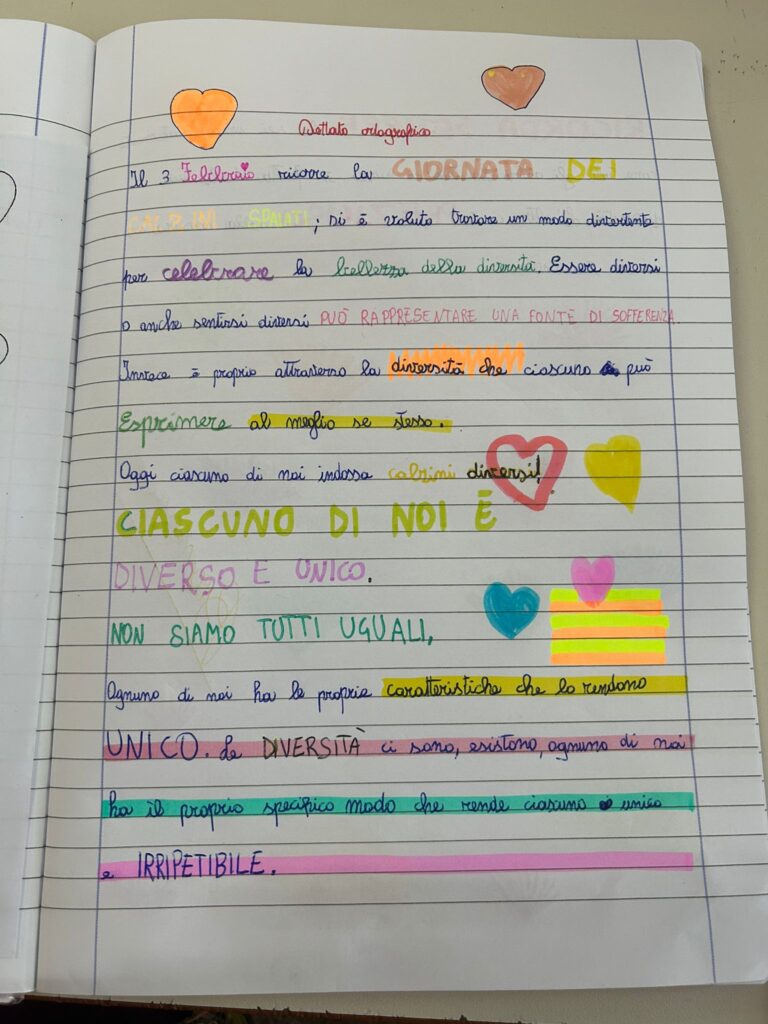 Dettato ortografico
Il 3 Febbraio ricorre la GIORNATA DEI
CALZINI SPAIATI; si è voluto trovare un modo divertente
per celebrare la bellezza della diversità. Essere diversi
o anche sentirsi diversi PUÒ RAPPRESENTARE UNA FONTE DI SOFFERENZA.
Invece è proprio attraverso la diversità che ciascuno può
Esprimere al meglio se stesso.
Oggi ciascuno di noi indossa calzini diversi!
CIASCUNO DI NOI È
DIVERSO E UNICO.
NON SIAMO TUTTI UGUALI,
Ognuno di noi ha le proprie caratteristiche che lo rendono
UNICO. Le DIVERSITÀ ci sono, esistono, ognuno di noi
ha il proprio specifico modo che rende ciascuno unico
e IRRIPETIBILE.